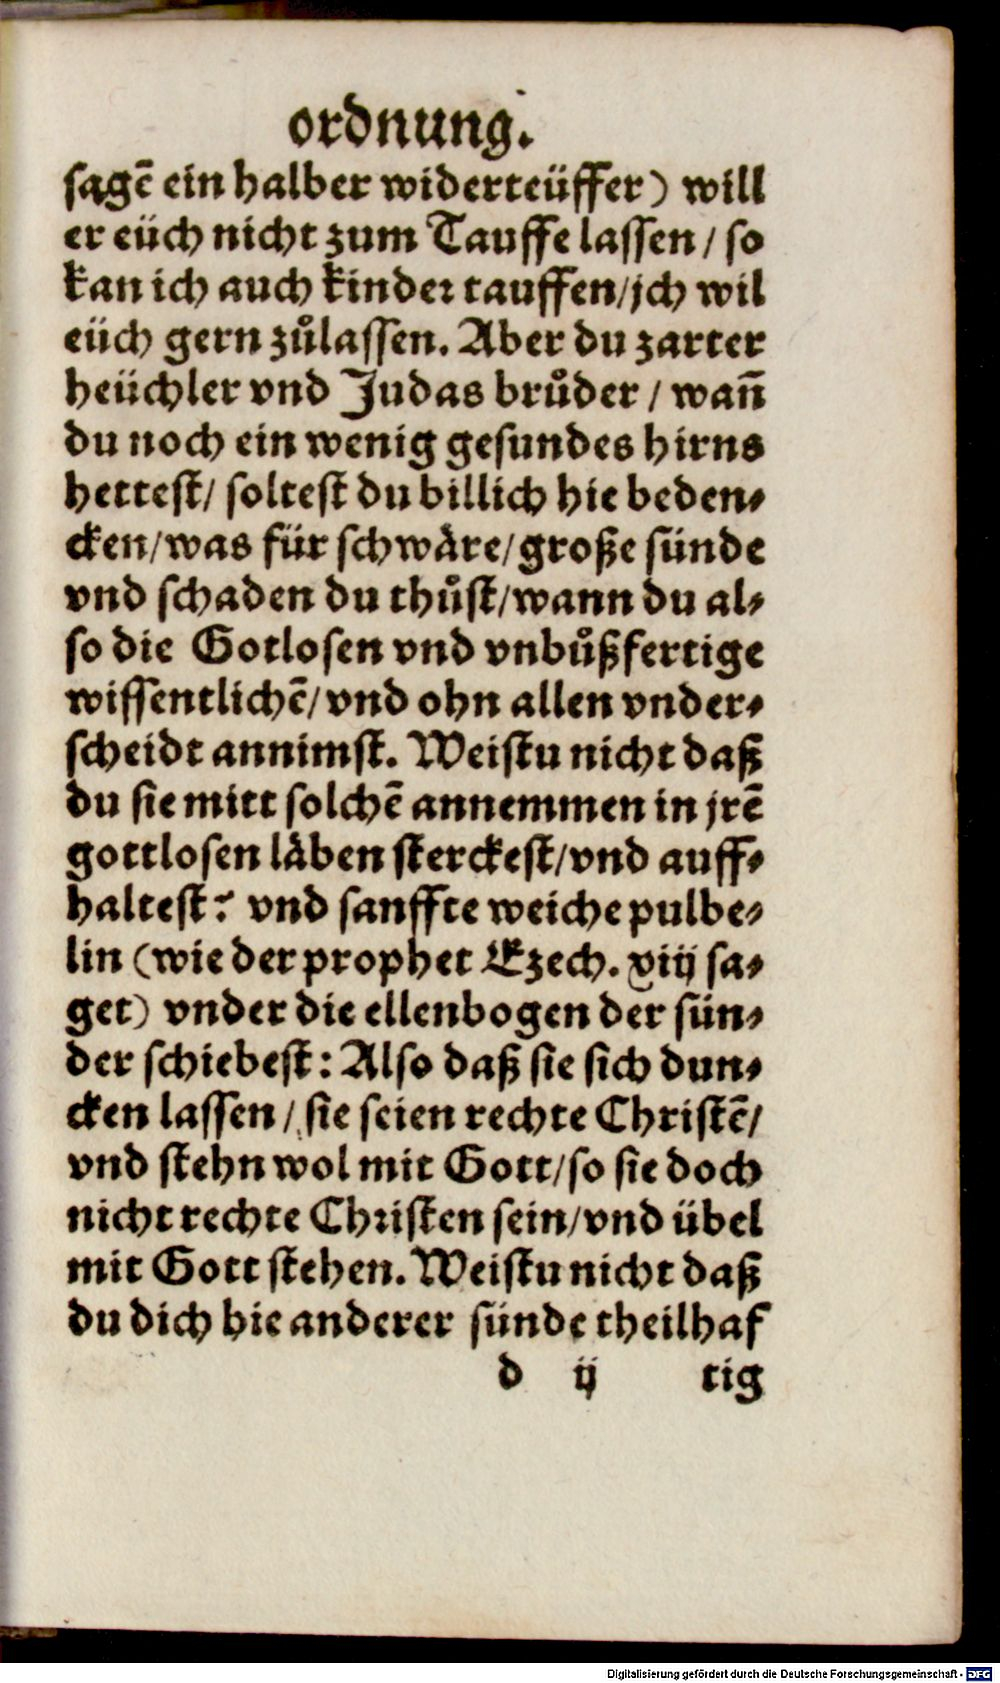 ordnung.
sagē ein halber widerteüffer) will
er eüch nicht zum Tauffe lassen / so
kan ich auch kinder tauffen / jch wil
eüch gern zůlassen. Aber du zarter
heüchler vnd Judas brůder / wañ
du noch ein wenig gesundes hirns
hettest / soltest du billich hie beden⸗
cken / was für schwäre / große sünde
vnd schaden du thůst / wann du al⸗
so die Gotlosen vnd vnbůßfertige
wissentlichē / vnd ohn allen vnder⸗
scheidt annimst. Weistu nicht daß
du sie mitt solchē annemmen in jrē
gottlosen läben sterckest / vnd auff⸗
haltest? vnd sanffte weiche pulbe⸗
lin (wie der prophet Ezech. xiij sa⸗
get) vnder die ellenbogen der sün⸗
der schiebest: Also daß sie sich dun⸗
cken lassen / sie seien rechte Christē /
vnd stehn wol mit Gott / so sie doch
nicht rechte Christen sein / vnd übel
mit Gott stehen. Weistu nicht daß
du dich hie anderer sünde theilhaf
d ij tig
Digitalisierung gefördert durch die Deutsche Forschungsgemeinschaft - DFG